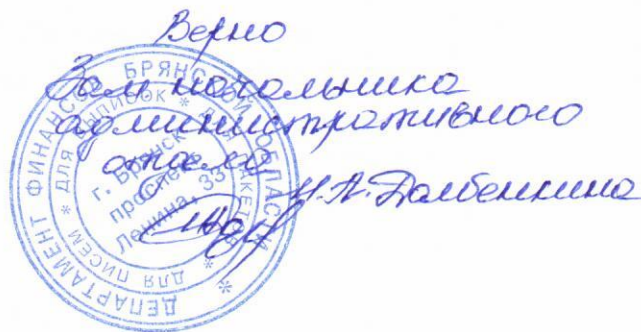 Верно
Зам начальника
административного
отдела
Н.А. Долбенкина
ДЕПАРТАМЕНТ ФИНАНСОВ БРЯНСКОЙ ОБЛАСТИ *
ДЛЯ ПИСЕМ * ДЛЯ ВЫПИСОК *
г. Брянск
проспект
Ленина, 33